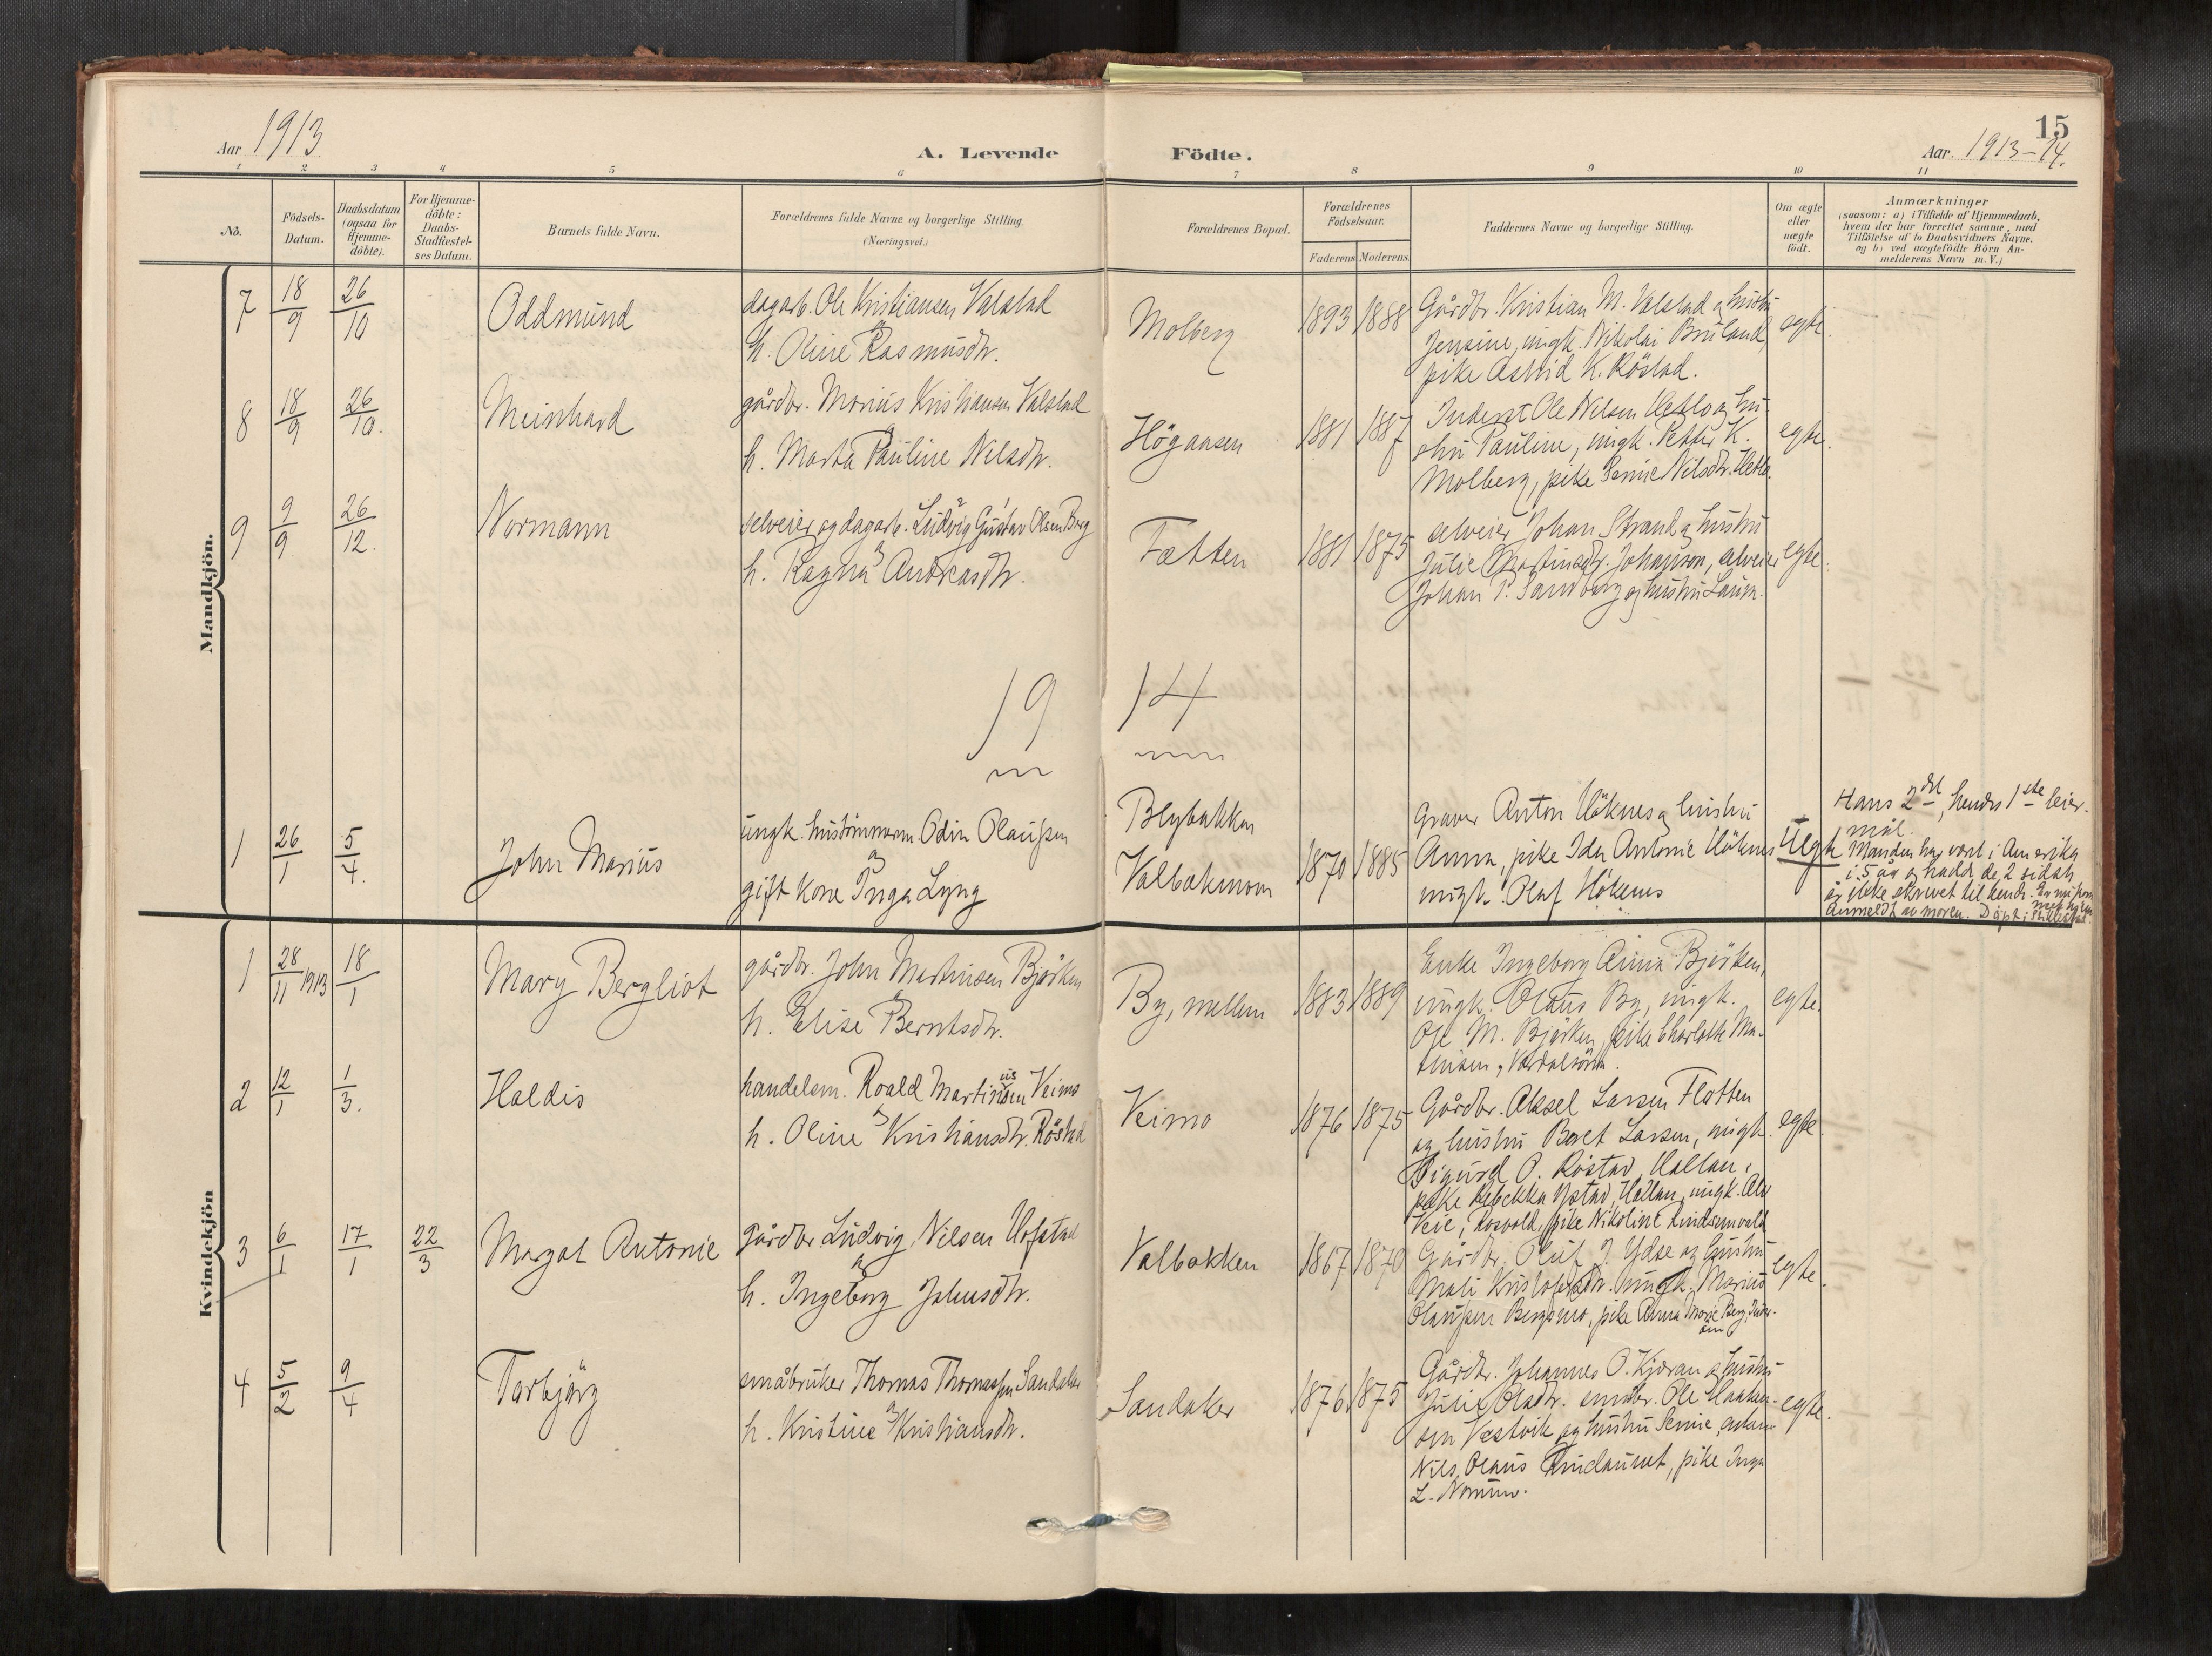 15
Aar 1913
A. Levende Födte.
Aar. 1913-14.
1 2 3 4 5 6 7 8 9 10 11
No.
Födsels-
Datum.
Daabsdatum
(ogsaa for
Hjemme-
döbte).
For Hjemme-
döbte:
Daabs-
Stadfæstel-
ses Datum.
Barnets fulde Navn.
Forældrenes fulde Navne og borgerlige Stilling.
(Næringsvei.)
Forældrenes Bopæl.
Forældrenes
Födselsaar.
Faderens Moderens
Faddernes Navne og borgerlige Stilling.
Om ægte
eller
uægte
födt.
Anmærkninger
(saasom: a) i Tilfælde af Hjemmedaab,
hvem der har forrettet samme, med
Tilföielse af to Daabsvidners Navne.
og b) ved uægtefödte Börn An-
melderens Navn m. V.)
Mandkjön.
7 18/9 26/10 Oddmund
dagarb. Ole Kristiansen Valstad
h. Oline Rasmusdtr.
Molberg 1893 1888
Gårdbr. Kristian M. Valstad og hustru
Jensine, ungk. Nikolai Bruland,
pike Astrid K. Röstad.
egte.
8 18/9 26/10. Meinhard
gårdbr. Marius Kristiansen Valstad
h. Marta Pauline Nilsdtr.
Högaasen 1881 1887
Inderst Ole Nilsen og hu-
stru Pauline, ungk. Petter K.
Molberg, pike Nilsdtr.
egte.
9 9/9 26/12. Normann
selveier og dagarb. Ludvig Gustav Olsen Berg
h. Ragna Andreasdtr.
Fætten 1881 1875
selveier Johan Strand og hustru
Julie Martinsdtr. Johanson, selveier
Johan P. Sandberg og hustru Laura.
egte.
19 14
1 26/1 5/4. John Marius
ungk. hustömmerm. Odin Olausen
gift kone Inga Lyng
Blybakken
Valbakmoen 1870 1885
Graver Anton Höknes og hustru
Anna, pike Ida Antonie Höknes
ungk. Olaf Höknes
Uegte
Hans 2det, hendes 1ste leier-
mål.
Manden har vært i Amerika
i 5 år og hadde de 2 sidste
år ikke skrevet til hende.
Anmeldt av moren. Döpt i
Kvindekjön
1 28/11 1913 18/1 Mary Bergliot
gårdbr. John Martinsen Björken
h. Elise Berntsdtr.
By, mellem 1883 1889
Enke Ingeborg Anna Björken,
ungk. Olaus By, ungk.
Ole M. Björken, pike Charlotte Ma-
tinsen, Værdalsören.
egte.
2 12/1 1/3. Haldis
handelsm. Roald Martinius Veimo
h. Oline Kristiansdtr. Röstad
Veimo 1876 1875
Gårdbr. Aksel Larsen Flotten
og hustru Beret Larsen, ungk.
Sigurd O. Röstad, Hallan,
pike Rebekka Ystad, Hallan, ungk.
Veie, Rosvold, pike Nikoline Lindsetvald
egte.
3 6/1 17/1 22/3 Margot Antonie
gårdbr. Ludvig Nilsen Hofstad
h. Ingeborg Johnsdtr.
Valbakken 1867 1870
Gårdbr. Oluf J. Ydse og hustru
Mali Kristofersdtr. ungk. Marius
Olausen Bergsmo, pike Anna Marie Berg, Inder-
öen
egte.
4 5/2 9/4 Torbjörg
småbruker Thomas Thomassen Sandaker
h. Kristine Kristiansdtr.
Sandaker 1876 1875
Gårdbr. Johannes O. Kjæran og hustru
Julie Olsdtr. småbr. Ole Haakon-
sen Vestvik og hustru
Nils Olaus pike Inga
L.
egte.